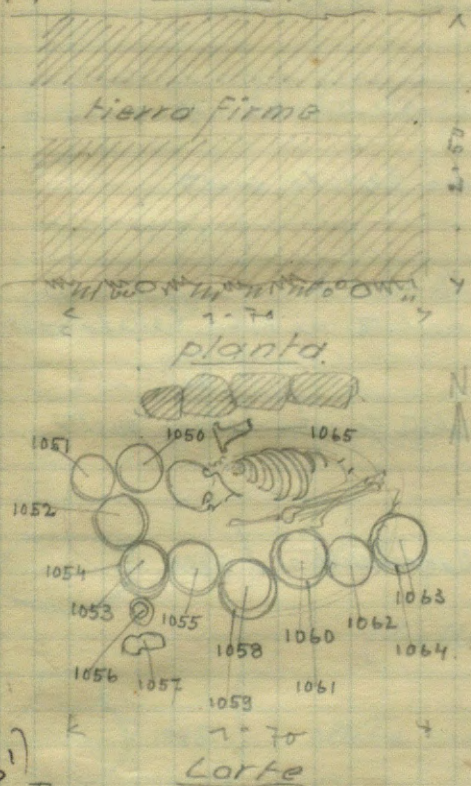 tierra firme
2-50
1-70
planta
N
1050
1065
1051
1052
1054
1053
1055
1063
1062
1060
1058
1064
1056
1057
1061
1059
1-70
Corte